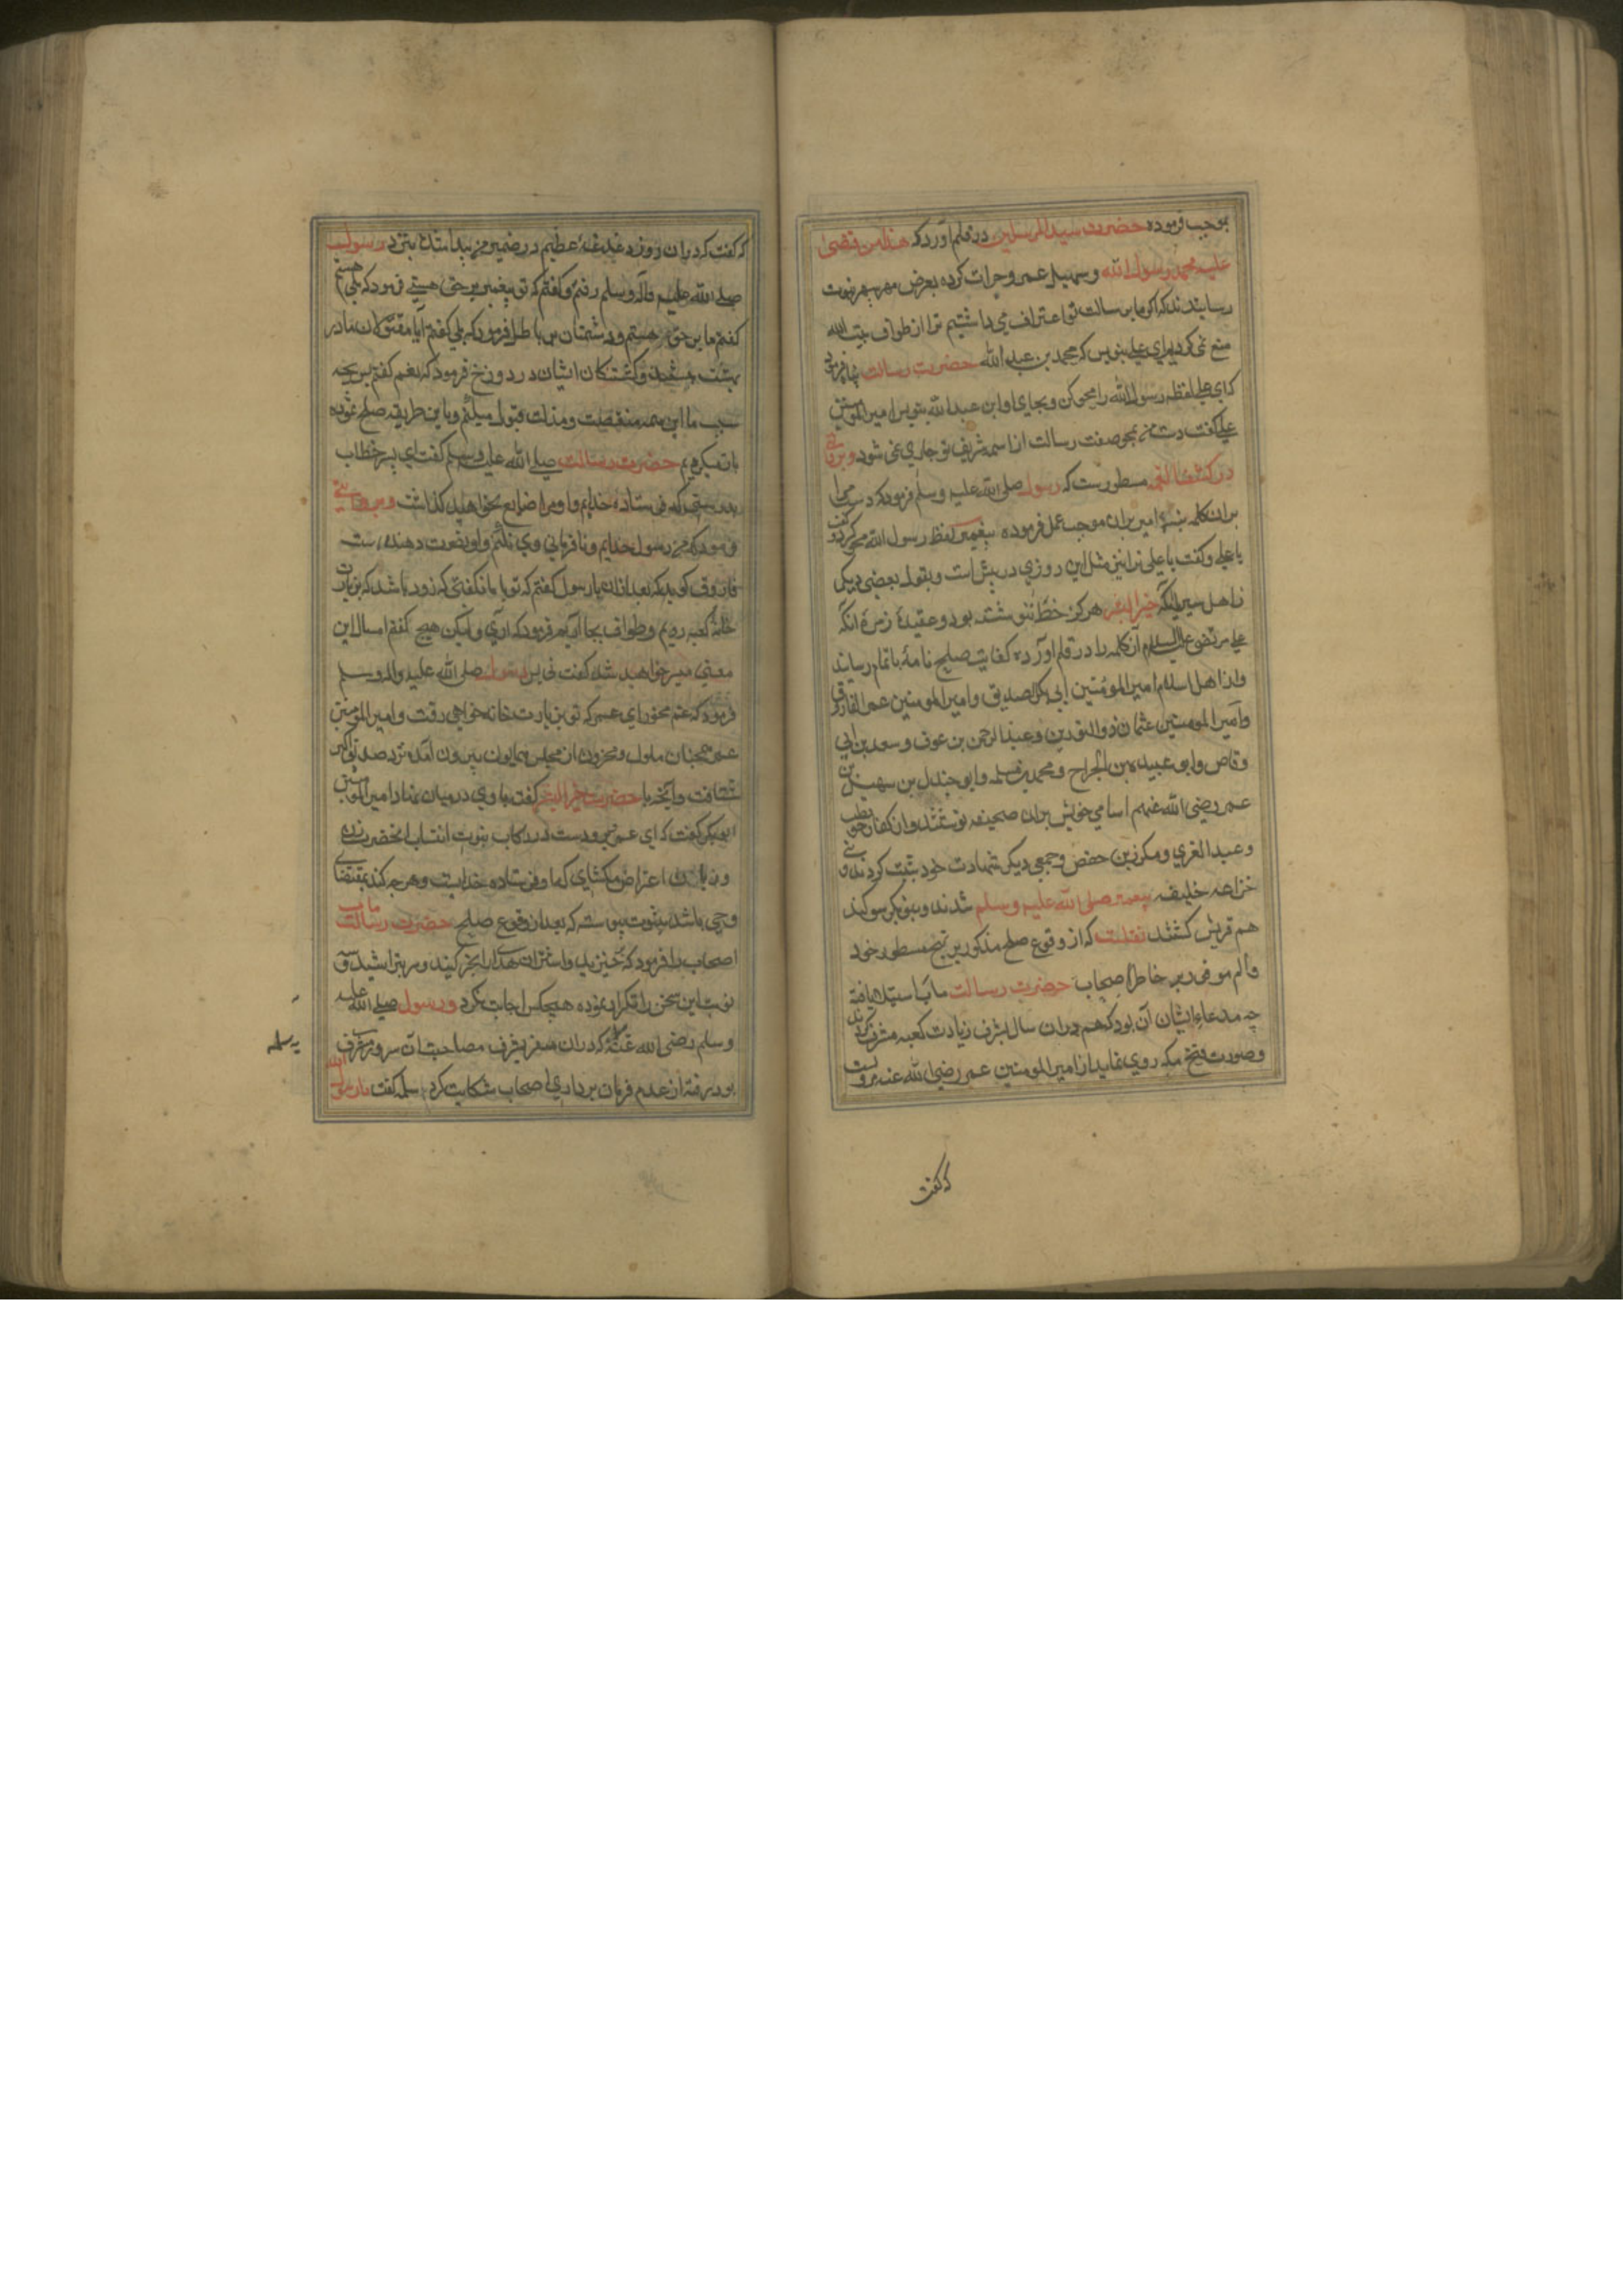 بموجب فرموده حضرت سید المرسلین در قلم آورد که هذا من قضی
علیه محمد رسول الله و سهیل عمرو جرات کرده بعرض مهر سپهر نبوت
رسانیدند که اگر ما برسالت تو اعتراف می داشتیم ترا از طواف بیت الله
منع نمی کردیم ای علی بنویس که محمد بن عبد الله حضرت رسالت پناه فرمود
که ای علی لفظ رسول الله را محو کن و بجای او ابن عبد الله بنویس امیر المومنین
علی گفت دست من بمحو صفت رسالت از اسم شریف تو جاری نمی شود و بروایتی
در کشف الغمه مسطورست که رسول صلی الله علیه وسلم فرمود که دست مرا
بران کلمه بنه امیر بران موجب عمل فرموده پیغمبر لفظ رسول الله محو کرد و گفت
یا علی و گفت یا علی ترا نیز مثل این روزی در پیش است و بقول بعضی دیگر
از اهل سیر آنکه خیر البشر هرگز خط ننوشته بود و عقیدۀ زمرۀ آنکه
علی مرتضی علیه السلام آن کلمه را در قلم آورده کفایت صلح نامه باتمام رسانید
و از اهل اسلام امیر المومنین ابی بکر الصدیق و امیر المومنین عمر الفاروق
و امیر المومنین عثمان ذو النورین و عبد الرحمن بن عوف و سعد بن ابی
وقاص و ابو عبیده بن الجراح و محمد بن مسلمه و ابو جندل بن سهیل بن
عمر رضی الله عنهم اسامی خویش بران صحیفه نوشتند و از کفار حویطب
و عبد العزی و مکرز بن حفص و جمعی دیگر شهادت خود ثبت کردند و بنی
خزاعه خلیفه پیغمبر صلی الله علیه وسلم شدند و بنو بکر سوگند
هم قریش گشتند نقلست که از وقوع صلح مذکور بر نهج مسطور خود
و الم موفور بر خاطر اصحاب حضرت رسالت ماب استیلا یافته
چه مدعاء ایشان آن بود که هم دران سال بشرف زیارت کعبه مشرف گردند
و صورت فتح مکه روی نماید از امیر المومنین عمر رضی الله عنه مرویست
که گفت
که گفت که دران روز دغدغۀ عظیم در ضمیر من پیدا شد بنزد رسول
صلی الله علیه وآله وسلم رفتم و گفتم که تو پیغمبر بر حق هستی فرمود که بلی هستم
گفتم ما بر حق هستیم و دشمنان بر باطل فرمود که بلی گفتم آیا مقتولان ما در
بهشت و کشتگان ایشان در دوزخ فرمود که نعم گفتم بر چه
سبب ما این همه منقصت و مذلت قبول میکنیم و باین طریقه صلح نموده
باز میگردیم حضرت رسالت صلی الله علیه وسلم گفت ای پسر خطاب
بدرستی که فرستاده خدایم و او مرا ضایع نخواهد گذاشت و بروایتی
فرمود که من رسول خدایم و نافرمانی وی نکنم و او نصرت دهنده است
فاروق گوید که بعد ازان یا رسول گفتم که تو با ما نگفتی که زود باشد که بزیارت
خانۀ کعبه رویم و طواف بجا آریم فرمود که آری ولیکن هیچ گفتم امسال این
معنی میسر خواهد شد گفت نی پس رسول صلی الله علیه واله وسلم
فرمود که غم مخور ای عمر که تو بزیارت خانه خواهی رفت و امیر المومنین
عمر همچنان ملول و محزون از مجلس همایون بیرون آمده نزد صدیق اکبر
شتافت و آنچه با حضرت خیر البشر گفت با وی در میان نهاد امیر المومنین
ابوبکر گفت که ای عمر برو دست در رکاب نبوت انتساب آنحضرت زن
و زبان اعتراض مکشای که او فرستاده خداست و هر چه کند بمقتضای
وحی باشد بثبوت پیوسته که بعد از وقوع صلح حضرت رسالت ماب
اصحاب را فرمود که خیزید و شتران هدی را نحر کنید و سر بتراشید سه
نوبت این سخن را تکرار نموده هیچکس اجابت نکرد و رسول صلی الله علیه
وسلم رضی الله عنها که دران سفر بشرف مصاحبت آن سرور مشرف
بود رفته از عدم فرمان برداری اصحاب شکایت کرد سلمه گفت یا رسول الله